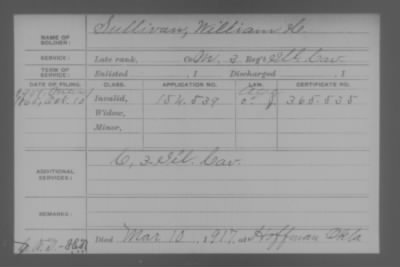 NAME OF SOLDIER: Sullivan, William H.
SERVICE: Late rank, Co M, 3 Reg't Ill. Cav.
TERM OF SERVICE: Enlisted , 1 Discharged , 1
DATE OF FILING. CLASS. APPLICATION NO. LAW. CERTIFICATE NO.
Invalid, 154.539 365.535
Widow,
Minor,
ADDITIONAL SERVICES: C, 3 Ill. Cav.
REMARKS:
Died Mar 10, 1917, at Hoffman Okla